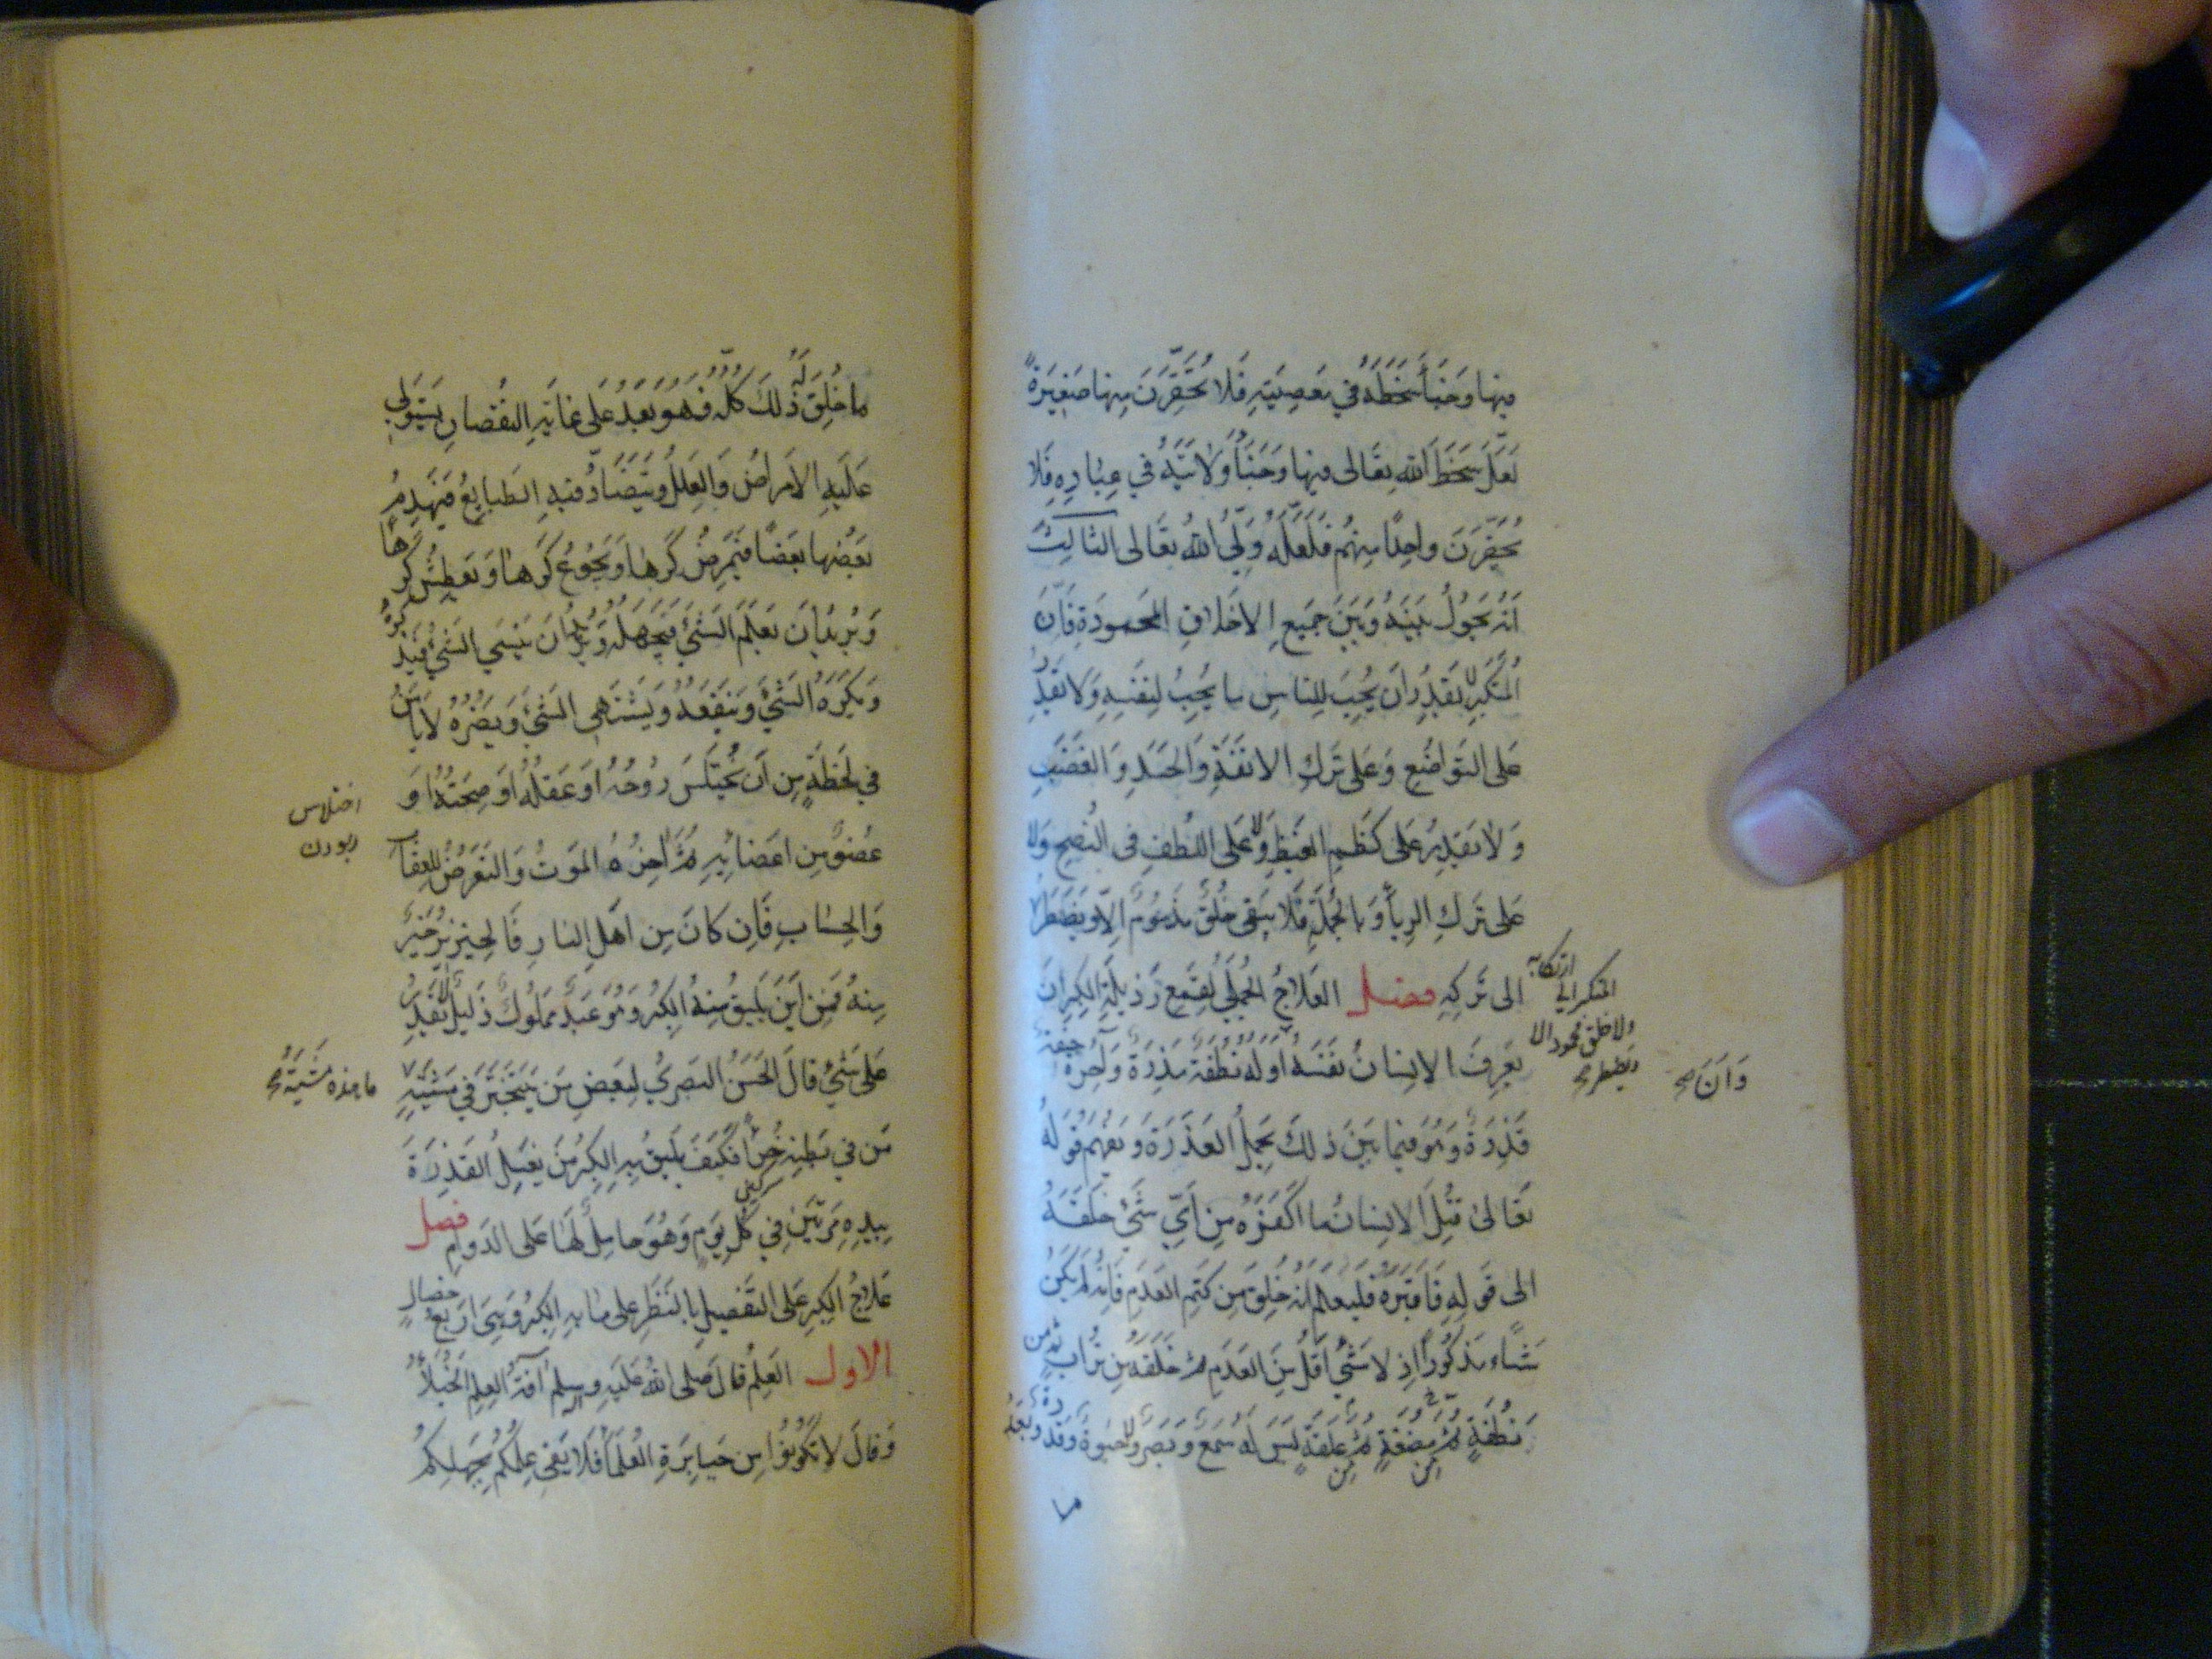 فيها وخبأ سخطه في معصيته فلا تحقرن منها صغيرة
لعل سخط الله تعالى فيها وخبأ ولايته في عباده فلا
تحقرن واحدا منهم فلعله ولي الله تعالى الثالث
انه يحول بينه وبين جميع الاخلاق المحمودة فان
المتكبر لا يقدر ان يحب للناس ما يحب لنفسه ولا يقدر
على التواضع وعلى ترك الانفة والحسد والغضب
ولا يقدر على كظم الغيظ ولا على اللطف في النصح ولا
على ترك الرياء وبالجملة فلا يبقى خلق مذموم الا ويضطر
المتكبر الى ارتكابه
ولا خلق محمود الا
ويضطر صح
الى تركه فصل العلاج الجملي لقمع رذيلة الكبر ان
وان صح
يعرف الانسان نفسه اوله نطفة مذرة وآخره جيفة
قذرة وهو فيما بين ذلك يحمل العذرة ويفهم قوله
تعالى قتل الانسان ما اكفره من اي شيء خلقه
الى قوله فاقبره فليعلم انه خلق من كتم العدم فانه لم يكن
شيئا مذكورا اذ لا شيء اقل من العدم ثم خلقه من تراب ثم من
نطفة ثم من مضغة ثم من علقة ليس له سمع وبصر ولا حيوة وقدرة وبعد
ما
ما خلق له ذلك كله فهو بعد على غاية النقصان يستولي
عليه الامراض والعلل ويتضاد فيه الطبايع فيهدم
بعضها بعضا فيمرض كرها ويجوع كرها ويعطش كرها
ويريد ان يعلم الشيء فيجهله ويريد ان ينسى الشيء فيذكره
ويكره الشيء وينفعه ويشتهي الشيء ويضره لا يامن
في لحظة من ان يختلس روحه او عقله او صحته او
اختلاس
ربودن
عضو من اعضائه ثم آخره الموت والتعرض للعقاب
والحساب فان كان من اهل النار فالخنزير خير
منه فمن اين يليق منه الكبر وهو عبد مملوك ذليل لا يقدر
على شيء قال الحسن البصري لبعض من يتبختر في مشيته
ما هذه مشية صح
من في بطنه خرء فكيف يليق به الكبر من يغسل القذرة
سركين
بيده مرتين في كل يوم وهو حامل لها على الدوام فصل
علاج الكبر على التفصيل بالنظر على ما به الكبر وهي اربع خصال
الاول العلم قال صلى الله عليه وسلم آفة العلم الخيلاء
وقال لا تكونوا من جبابرة العلماء فلا يفي علمكم بجهلكم